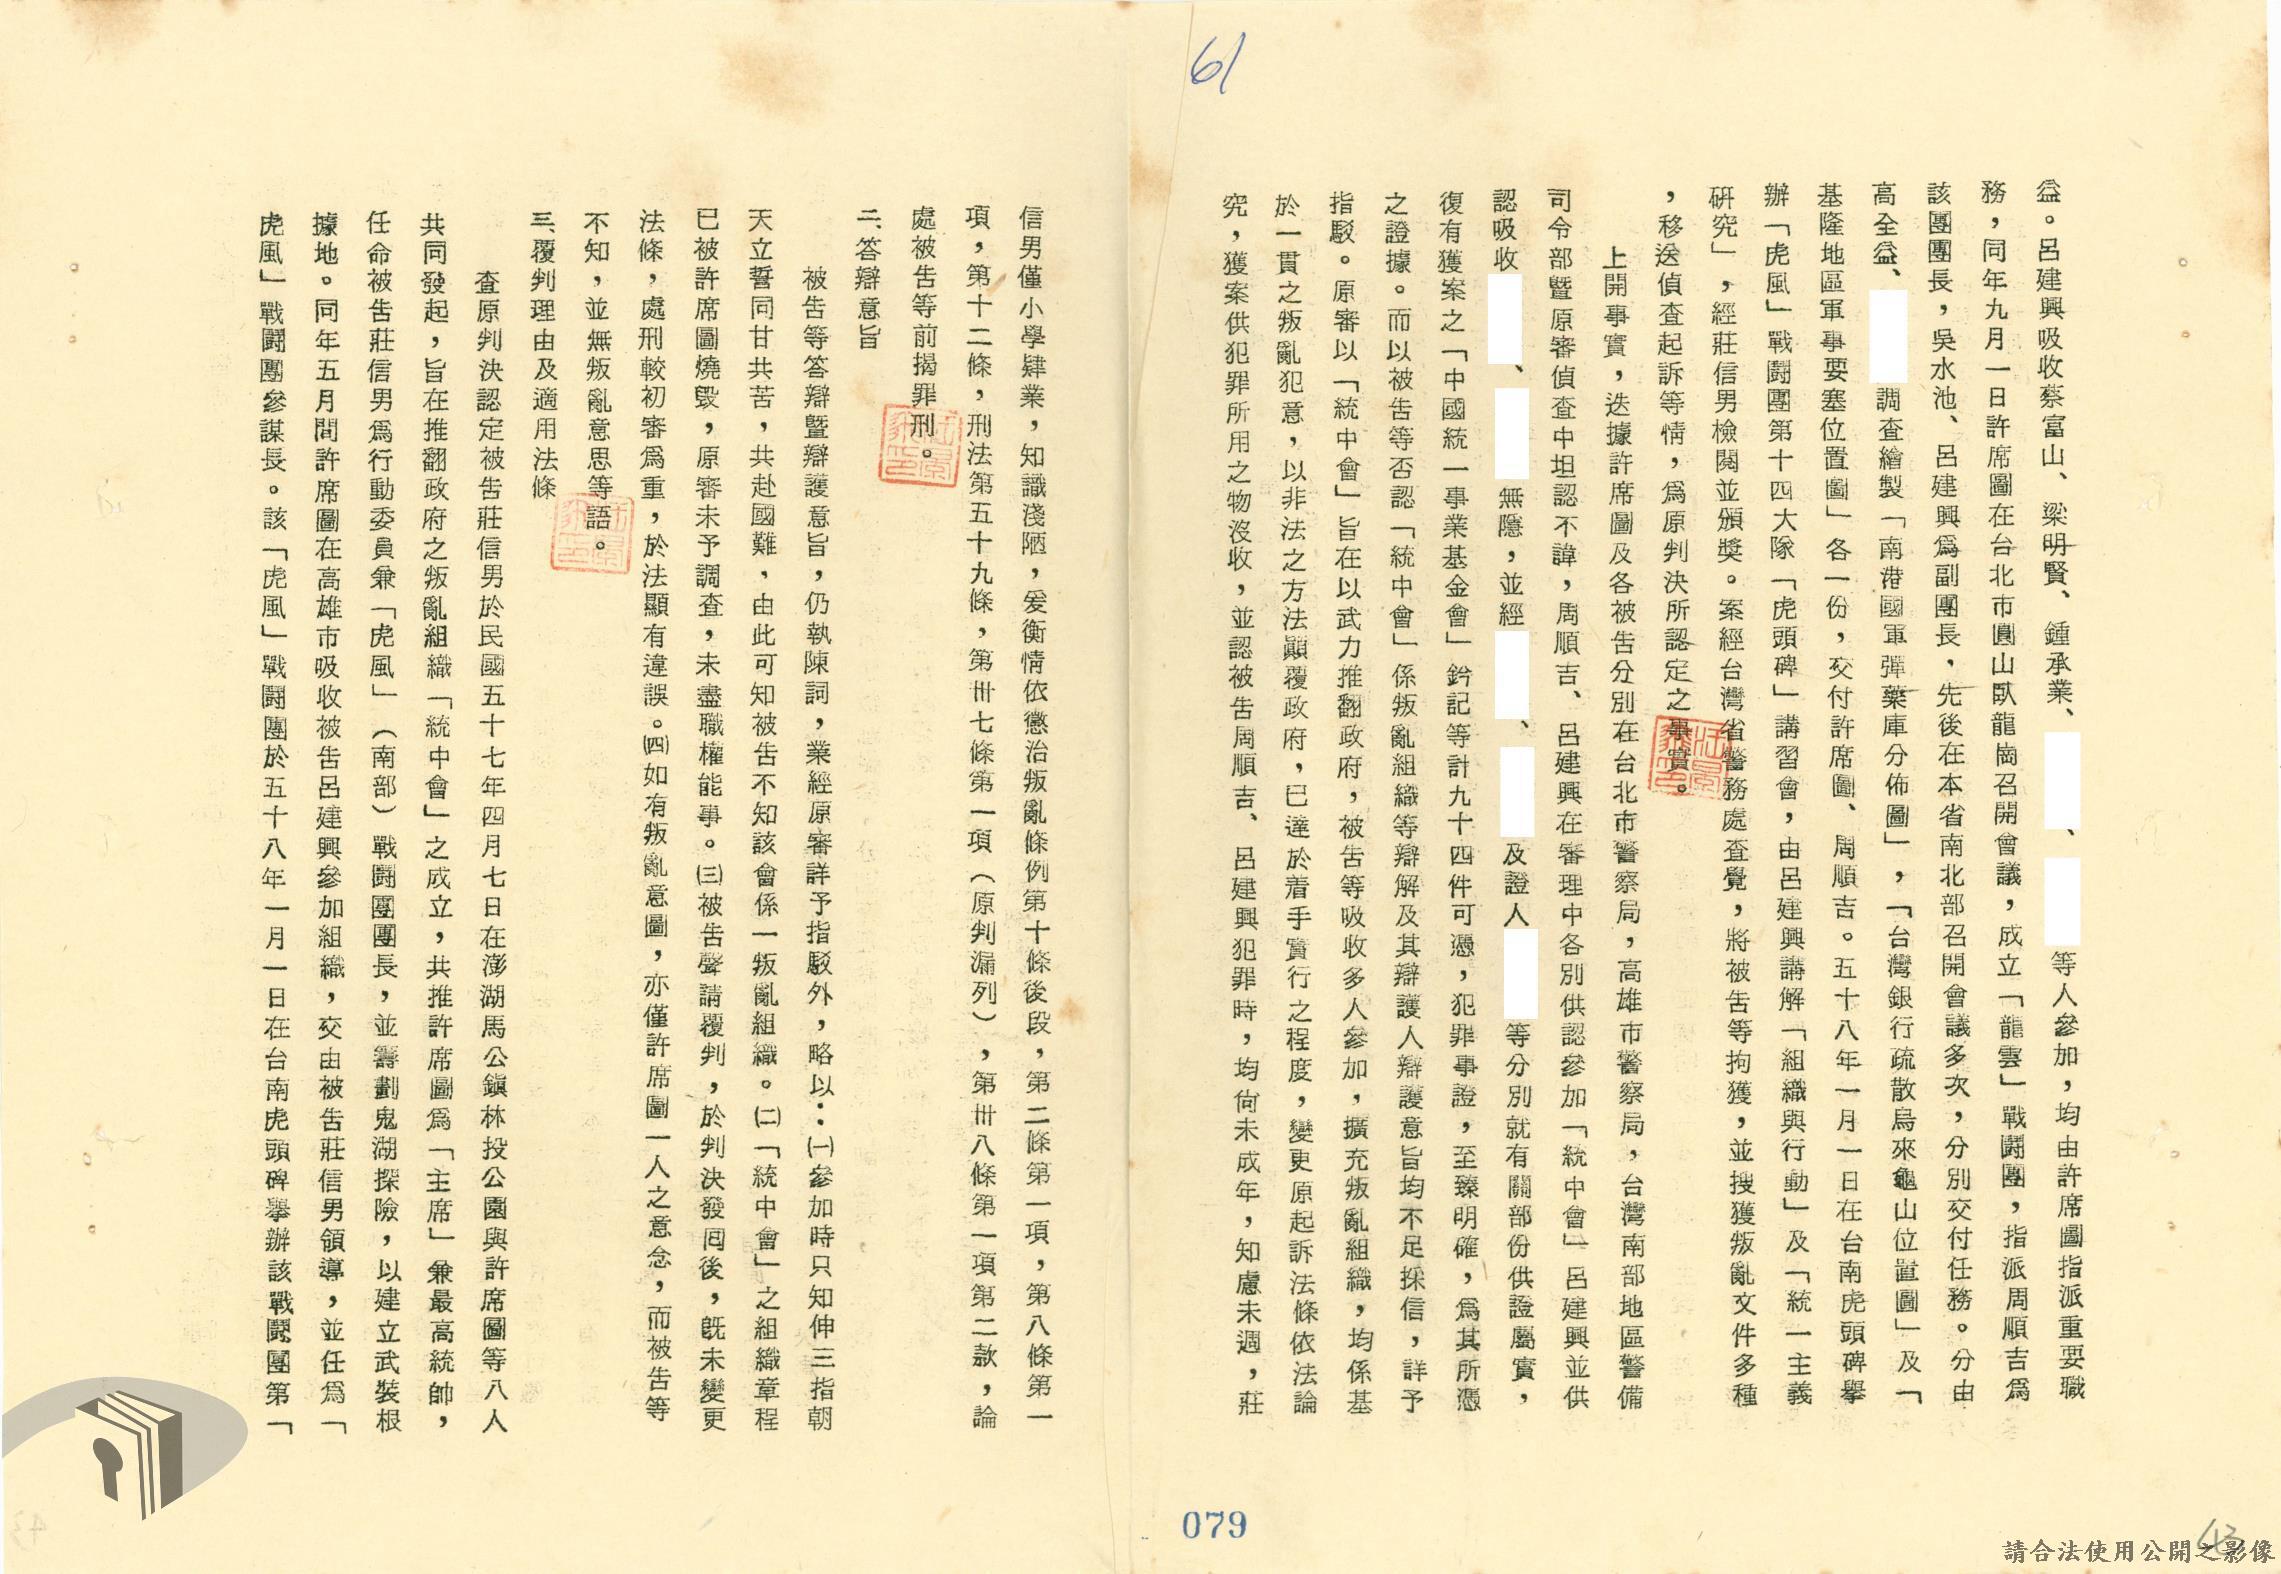 61
益。呂建興吸收蔡富山、梁明賢、鍾承業、、等人參加，均由許席圖指派重要職
務，同年九月一日許席圖在台北市圓山臥龍崗召開會議，成立「龍雲」戰鬪團，指派周順吉爲
該團團長，吳水池、呂建興爲副團長，先後在本省南北部召開會議多次，分別交付任務。分由
高全益、調查繪製「南港國軍彈藥庫分佈圖」，「台灣銀行疏散烏來龜山位置圖」及「
基隆地區軍事要塞位置圖」各一份，交付許席圖、周順吉。五十八年一月一日在台南虎頭碑擧
辦「虎風」戰鬪團第十四大隊「虎頭碑」講習會，由呂建興講解「組織與行動」及「統一主義
研究」，經莊信男檢閱並頒獎。案經台灣省警務處查覺，將被告等拘獲，並搜獲叛亂文件多種
，移送偵查起訴等情，爲原判決所認定之事實。
上開事實，迭據許席圖及各被告分別在台北市警察局，高雄市警察局，台灣南部地區警備
司令部暨原審偵查中坦認不諱，周順吉、呂建興在審理中各別供認參加「統中會」呂建興並供
認吸收、無隱，並經、及證人等分別就有關部份供證屬實，
復有獲案之「中國統一事業基金會」鈐記等計九十四件可憑，犯罪事證，至臻明確，爲其所憑
之證據。而以被告等否認「統中會」係叛亂組織等辯解及其辯護人辯護意旨均不足採信，詳予
指駁。原審以「統中會」旨在以武力推翻政府，被告等吸收多人參加，擴充叛亂組織，均係基
於一貫之叛亂犯意，以非法之方法顚覆政府，已達於着手實行之程度，變更原起訴法條依法論
究，獲案供犯罪所用之物沒收，並認被告周順吉、呂建興犯罪時，均尙未成年，知慮未週，莊
信男僅小學肄業，知識淺陋，爰衡情依懲治叛亂條例第十條後段，第二條第一項，第八條第一
項，第十二條，刑法第五十九條，第卅七條第一項（原判漏列），第卅八條第一項第二款，論
處被告等前揭罪刑。
二、答辯意旨
被告等答辯暨辯護意旨，仍執陳詞，業經原審詳予指駁外，略以：㈠參加時只知伸三指朝
天立誓同甘共苦，共赴國難，由此可知被告不知該會係一叛亂組織。㈡「統中會」之組織章程
已被許席圖燒毀，原審未予調查，未盡職權能事。㈢被告聲請覆判，於判決發回後，旣未變更
法條，處刑較初審爲重，於法顯有違誤。㈣如有叛亂意圖，亦僅許席圖一人之意念，而被告等
不知，並無叛亂意思等語。
三、覆判理由及適用法條
查原判決認定被告莊信男於民國五十七年四月七日在澎湖馬公鎭林投公園與許席圖等八人
共同發起，旨在推翻政府之叛亂組織「統中會」之成立，共推許席圖爲「主席」兼最高統帥，
任命被告莊信男爲行動委員兼「虎風」（南部）戰鬪團團長，並籌劃鬼湖探險，以建立武裝根
據地。同年五月間許席圖在高雄市吸收被告呂建興參加組織，交由被告莊信男領導，並任爲「
虎風」戰鬪團參謀長。該「虎風」戰鬪團於五十八年一月一日在台南虎頭碑擧辦該戰鬪團第「
079
43
請合法使用公開之影像